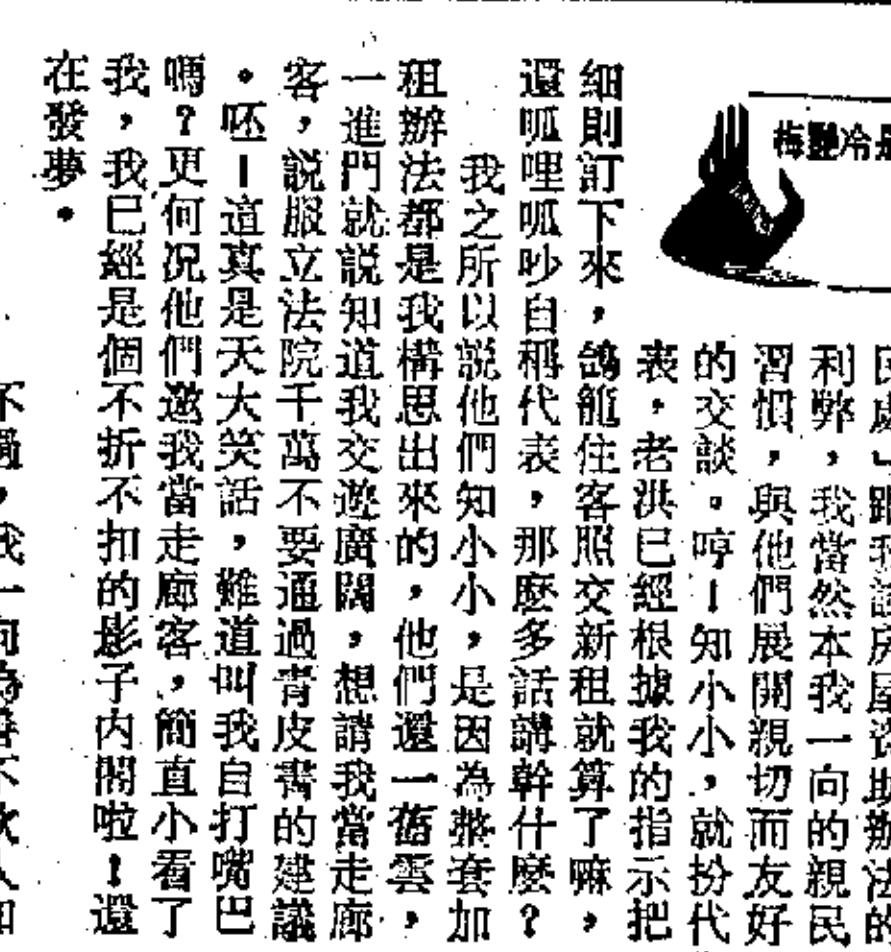 梅艷冷是
民處」跟我談房屋資助辦法的
利弊，我當然本我一向的親民
習慣，與他們展開親切而友好
的交談。哼！知小小，就扮代
表，老洪已經根據我的指示把
細則訂下來，鴿籠住客照交新租就算了嘛，
還呱哩呱吵自稱代表，那麼多話講幹什麼？
我之所以說他們知小小，是因為整套加
租辦法都是我構思出來的，他們還一舊雲，
一進門就說知道我交遊廣闊，想請我當走廊
客，說服立法院千萬不要通過青皮書的建議
。呸！這真是天大笑話，難道叫我自打嘴巴
嗎？更何況他們邀我當走廊客，簡直小看了
我，我已經是個不折不扣的影子內閣啦！還
在發夢。
不過，我一向為善不欲人知